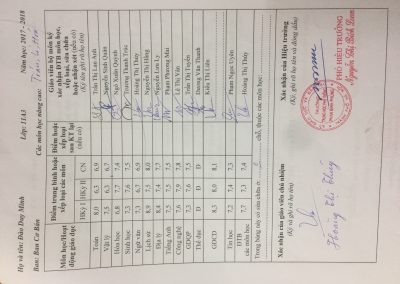 Họ và tên: Đào Duy Minh Lớp: 11A3 Năm học: 2017 - 2018
Ban: Ban Cơ Bản Các môn học nâng cao:
Môn học/Hoạt động giáo dục
Điểm trung bình hoặc xếp loại các môn
Điểm hoặc xếp loại KT lại (nếu có)
Giáo viên bộ môn ký xác nhận ĐTB môn học, xếp loại, sửa chữa hoặc nhận xét (nếu có) (Ký tên ghi rõ họ tên)
HKỳ I HKỳ II CN
Toán 8,0 6,3 6,9 Trần Thị Lan Anh
Vật lý 7,5 6,3 6,7 Nguyễn Sinh Quân
Hóa học 6,8 7,7 7,4 Ngô Xuân Quỳnh
Sinh học 7,3 7,6 7,5 Trương Thành Trúc
Ngữ văn 7,3 6,7 6,9 Hoàng Thị Thủy
Lịch sử 8,9 7,6 8,0 Nguyễn Thị Hằng
Địa lý 8,4 7,4 7,7
Tiếng Anh 7,5 7,5 7,5 Phạm Phương Mai
Công nghệ 7,6 7,9 7,8 Lê Thị Vân
GDQP 7,3 7,6 7,5 Trần Thị Tuyến
Thể dục Đ Đ Đ Dương Văn Thanh
GDCD 8,3 8,0 8,1 Kiều Thị Liên
Tin học 7,4 7,2 7,3 Phạm Ngọc Uyên
ĐTB các môn học 7,7 7,3 7,4 Hoàng Thị Thủy
Trong bảng này có sửa chữa ở: chỗ, thuộc các môn học:
Xác nhận của giáo viên chủ nhiệm
(Ký và ghi rõ họ tên)
Xác nhận của Hiệu trưởng
(Ký, ghi rõ họ tên và đóng dấu)
PHÓ HIỆU TRƯỞNG